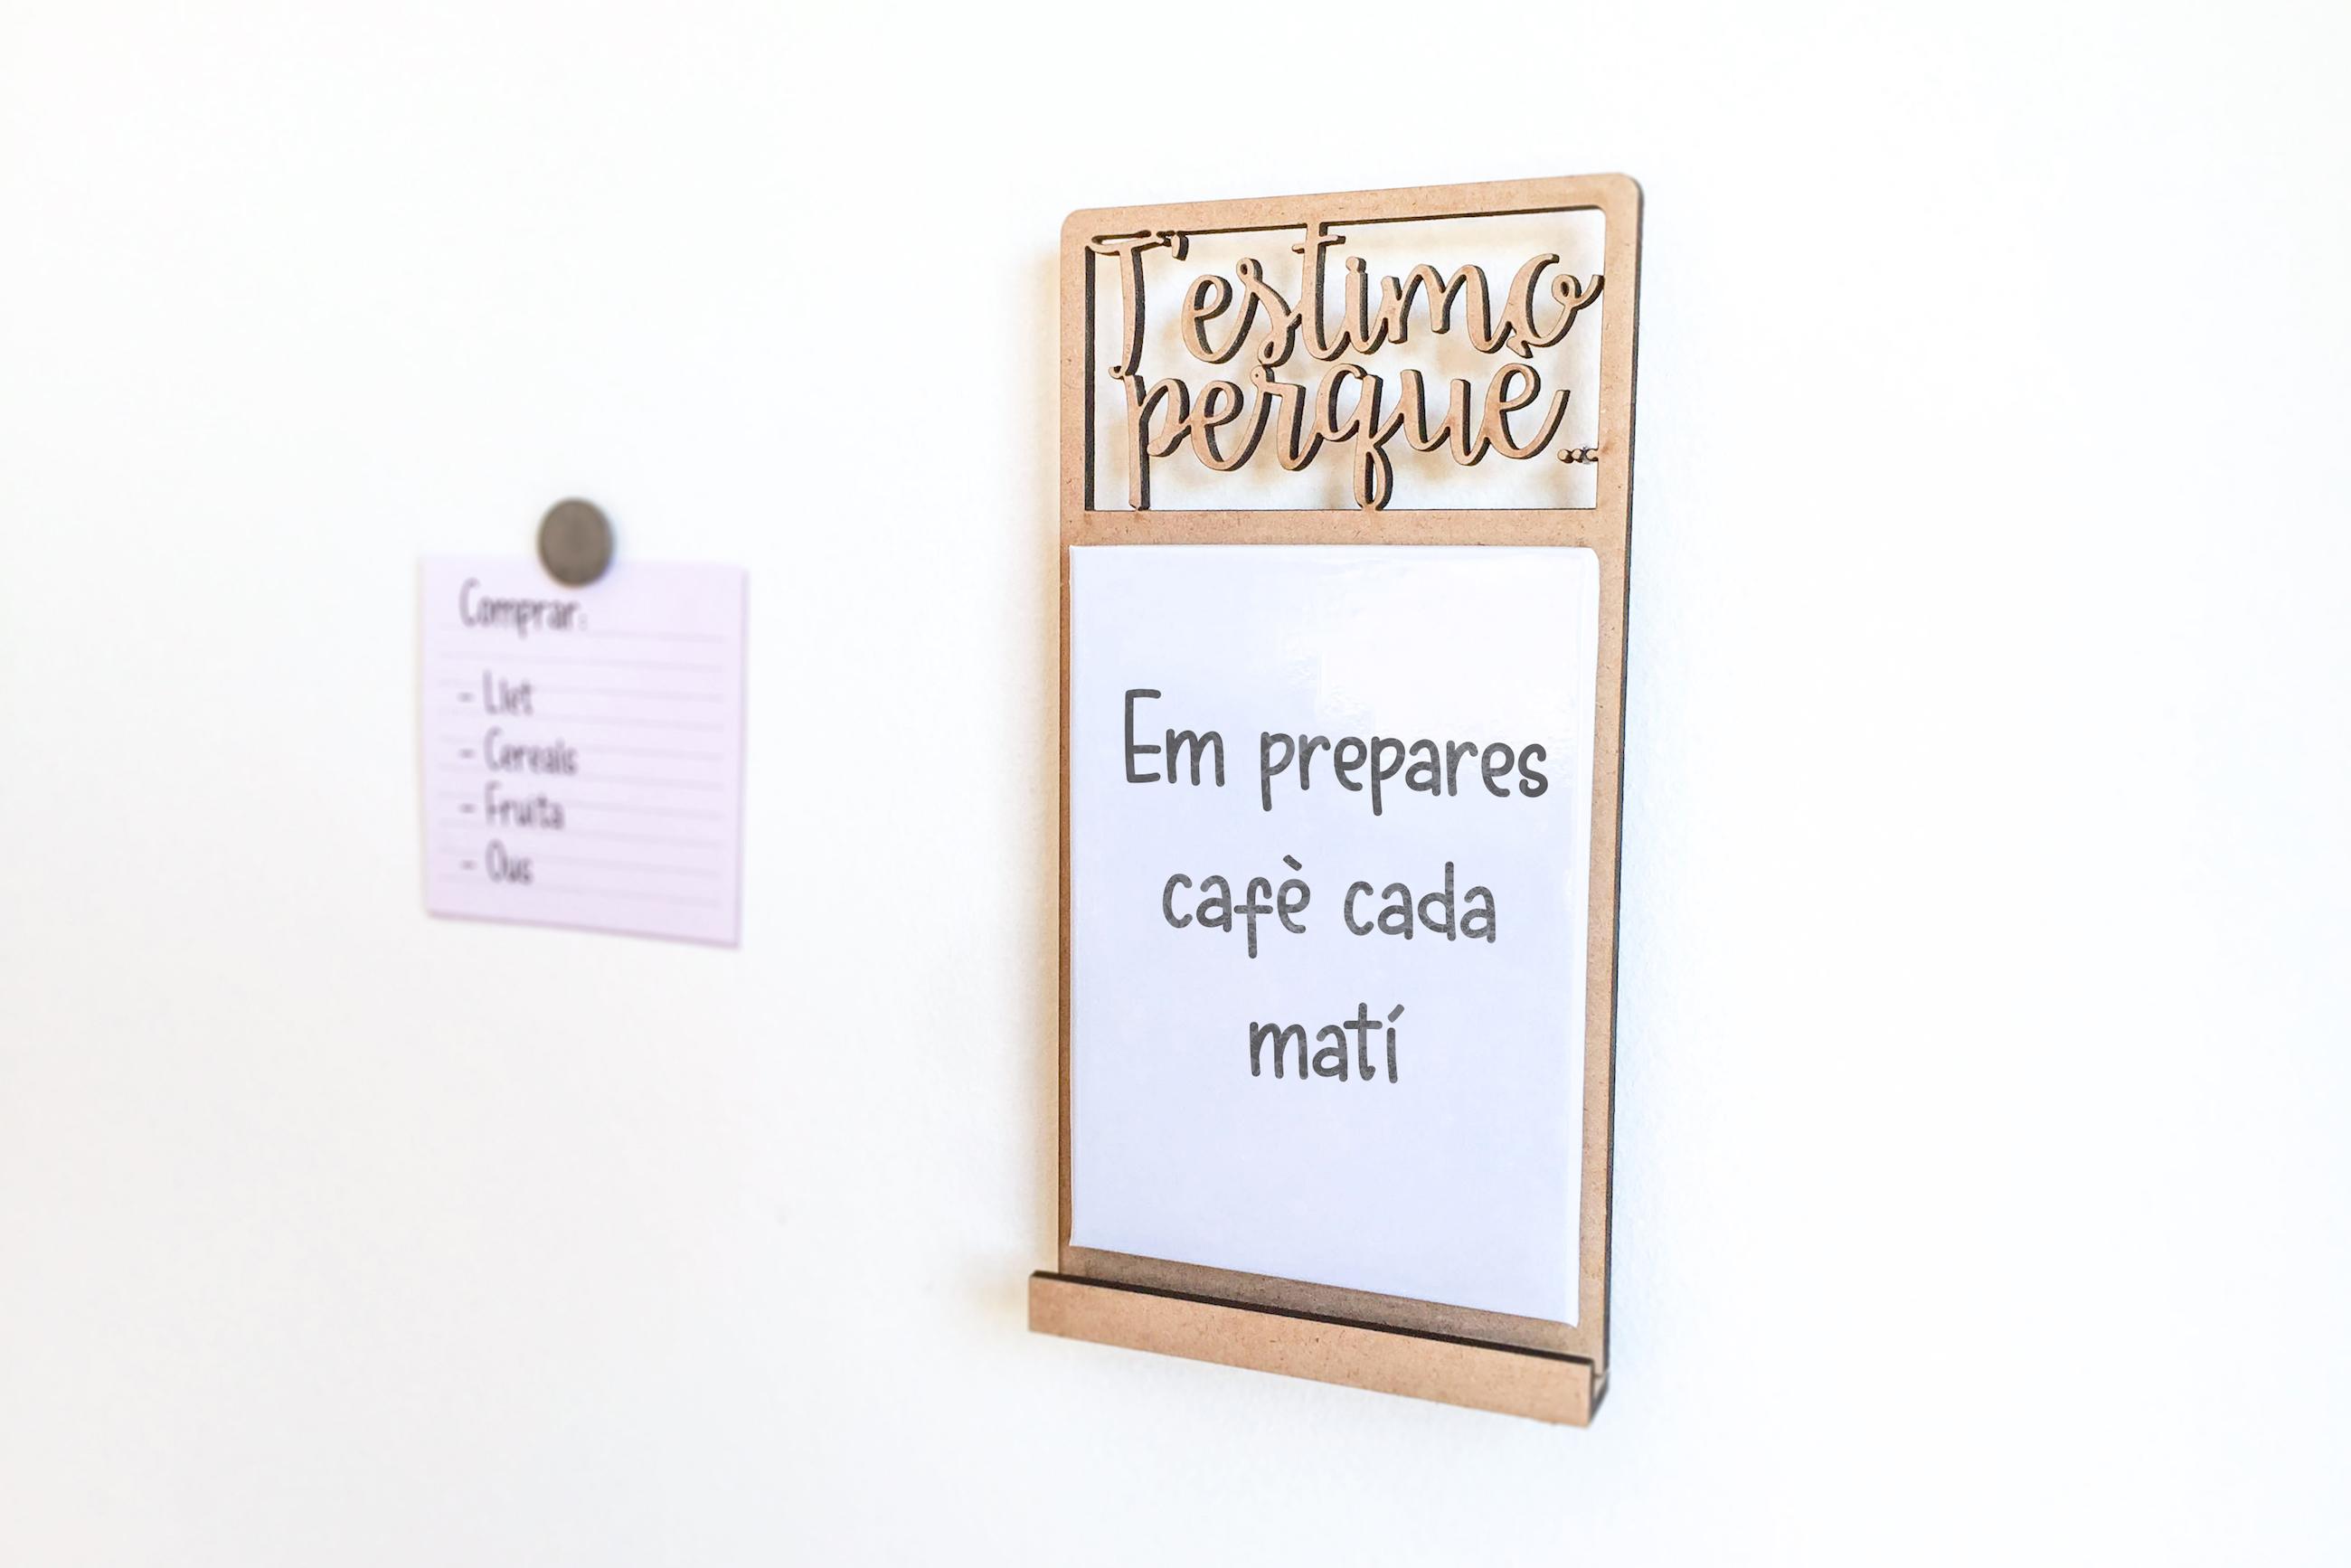 Comprar:
- Llet
- Cereals
- Fruita
- Ous
T'estimo
perquè...
Em prepares
cafè cada
matí